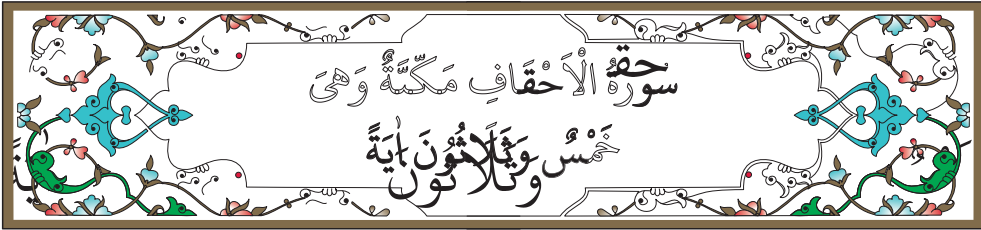 سورةُ الْاَحْقَافِ مَكِّيَّةٌ وَهِىَ
خَمْسٌ وَثَلَاثُونَ اٰيَةً